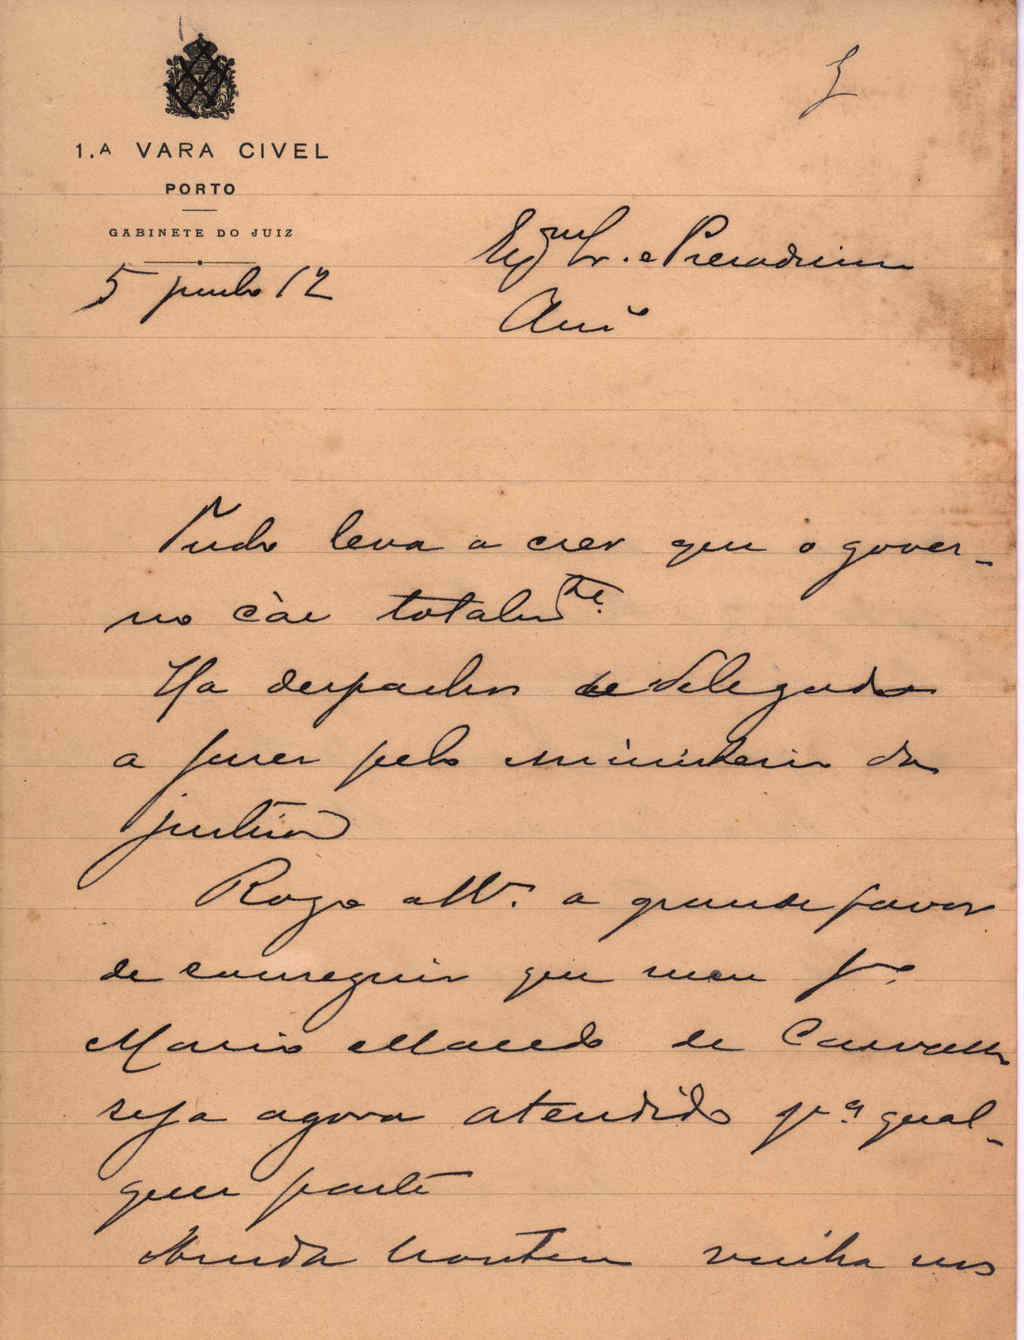 1.A VARA CIVEL
PORTO
GABINETE DO JUIZ
5 junho 12
Exmo Sr. e Presadissimo
Amo
Tudo leva a crer que o gover-
no càe totalmte.
Ha despachos de Delegados
a fazer pelo ministerio da
justiça
Rogo a V. o grande favor
de conseguir que meu fo
Mario Macedo de Carvalho
seja agora atendido pa qual-
quer parte
Ainda hontem vinha nos